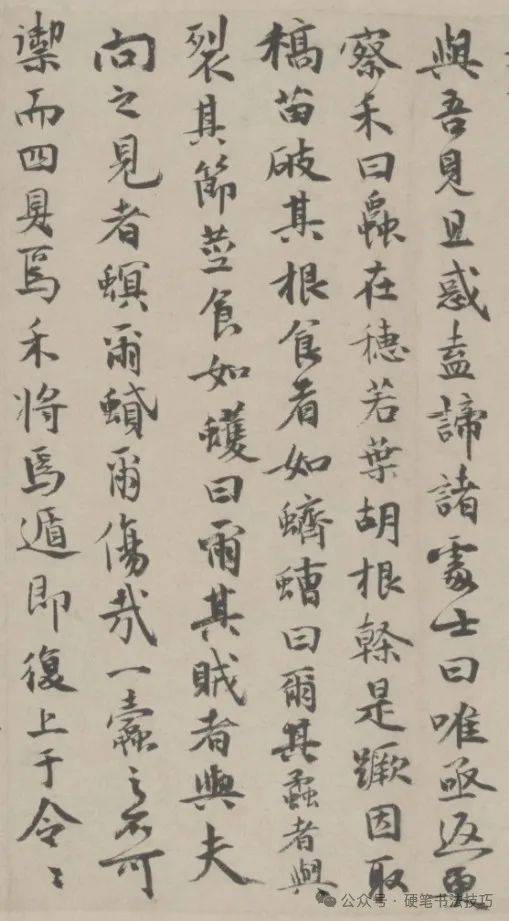 與吾見且惑盍諦諸處士曰唯亟返
察禾曰蟲在穗若葉胡根榦是蹶因取
稿苗破其根食者如蠐螬曰爾其蟊者與
裂其節莖食如蠖曰爾其賊者與夫
向之見者螟爾蟘爾傷哉一蠹之不可
禦而四具焉禾將焉遁即復上于令〻
公众号·硬笔书法技巧